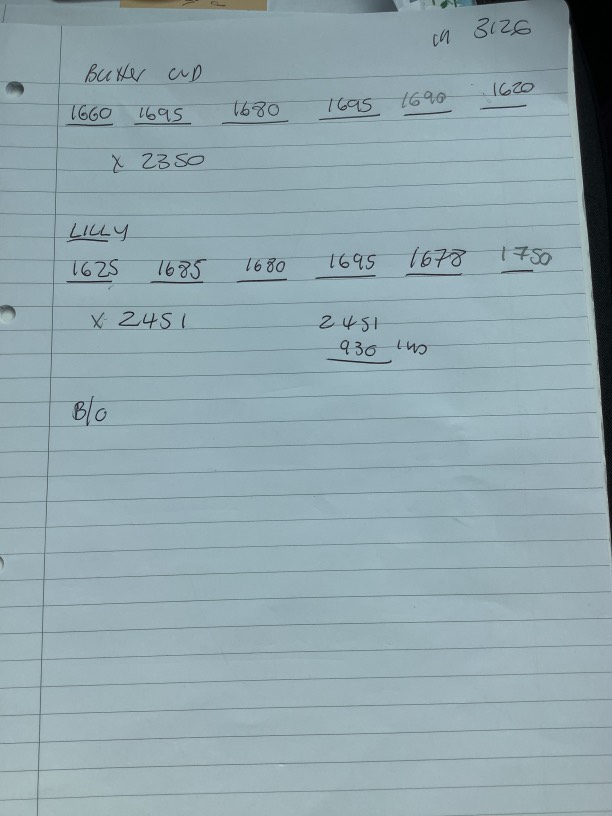 CH 3126
Buxter WD
1660 1695 1680 1695 1690 1620
x 2350
LILLY
1625 1685 1680 1695 1678 1750
x 2451 2451
930
B/O